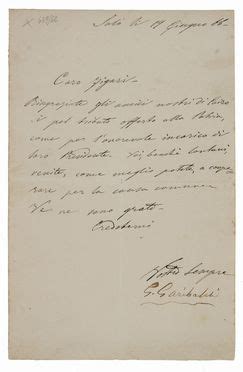 Salò li 19 Giugno 66
Caro Figari
Ringraziate gli amici nostri di
pel tributo offerto alla Patria,
come per l'onorevole incarico di
loro Presidente. Voi benchè lontani
venite, come meglio potete, a
per la causa comune.
Ve ne sono grato
Credetemi
Vostro sempre
G. Garibaldi